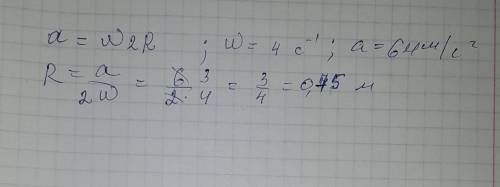 a = W2R ; W = 4 c⁻¹ ; a = 6 мм/c²
R = a/2W = 6 3/2·4 = 3/4 = 0,75 м